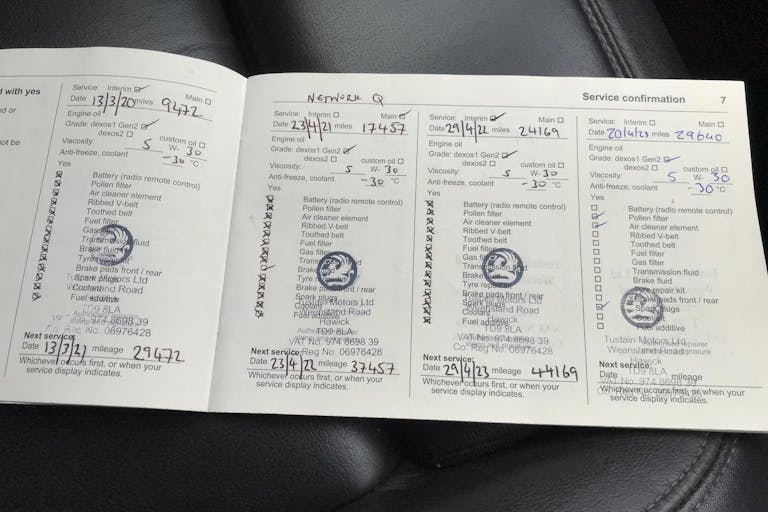 d with yes
d or
not be
Service: Interim Main
Date 13/3/20 miles 9472
Engine oil
Grade: dexos1 Gen2
dexos2 custom oil
Viscosity: 5 W- 30
Anti-freeze, coolant -30 °C
Yes
Battery (radio remote control)
Pollen filter
Air cleaner element
Ribbed V-belt
Toothed belt
Fuel filter
Gas
Transmission fluid
Brake fluid
Tyre
Brake pads front / rear
Spark plugs
Coolant
Fuel additive
Tustain Motors Ltd
Weensland Road
TD9 8LA
974 8698 39
Co. Reg No. 06976428
Next service:
Date 13/3/21 mileage 29472
Whichever occurs first, or when your
service display indicates.
NETWORK Q
Service confirmation 7
Service: Interim Main
Date 23/4/21 miles 17457
Engine oil
Grade: dexos1 Gen2
dexos2 custom oil
Viscosity: 5 W- 30
Anti-freeze, coolant -30 °C
Yes
Battery (radio remote control)
Pollen filter
Air cleaner element
Ribbed V-belt
Toothed belt
Fuel filter
Gas filter
Brake
Tyre
Brake pads front / rear
Spark plugs
Coolant
Fuel additive
Tustain Motors Ltd
Weensland Road
Hawick
TD9 8LA
VAT No. 974 8698 39
Co. Reg No. 06976428
Next service:
Date 23/4/22 mileage 37457
Whichever occurs first, or when your
service display indicates.
Service: Interim Main
Date 29/4/22 miles 24169
Engine oil
Grade: dexos1 Gen2
dexos2 custom oil
Viscosity: 5 W- 30
Anti-freeze, coolant -30 °C
Yes
Battery (radio remote control)
Pollen filter
Air cleaner element
Ribbed V-belt
Toothed belt
Fuel filter
Gas filter
Transmission fluid
Brake fluid
Tyre repair
Brake pads front / rear
Spark plugs
Coolant
Fuel additive
Tustain Motors Ltd
Weensland Road
Hawick
TD9 8LA
VAT No. 974 8698 39
Co. Reg No. 06976428
Next service:
Date 29/4/23 mileage 44169
Whichever occurs first, or when your
service display indicates.
Service: Interim Main
Date 20/4/23 miles 29640
Engine oil
Grade: dexos1 Gen2
dexos2 custom oil
Viscosity: 5 W- 30
Anti-freeze, coolant -30 °C
Yes
Battery (radio remote control)
Pollen filter
Air cleaner element
Ribbed V-belt
Toothed belt
Fuel filter
Gas filter
Transmission fluid
Brake fluid
Tyre repair kit
Brake pads front / rear
Spark plugs
Coolant
Fuel additive
Tustain Motors Ltd
Weensland Road
Hawick
TD9 8LA
VAT No. 974 8698 39
Next service:
Date mileage
Whichever occurs first, or when your
service display indicates.